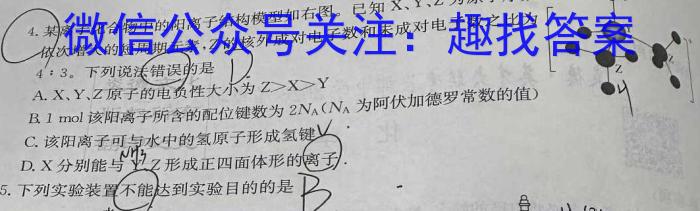 4. 某离子化合物中的阳离子结构模型如右图。已知X、Y、Z为原子序
依次增大的短周期元素,Z的核外成对电子数和未成对电子数之比为
微信公众号关注：趣找答案
4∶3。下列说法错误的是 D.
A. X、Y、Z原子的电负性大小为 Z>X>Y
B. 1 mol 该阳离子所含的配位键数为 2NA(NA 为阿伏加德罗常数的值)
C. 该阳离子可与水中的氢原子形成氢键
NH3
D. X分别能与Y、Z形成正四面体形的离子
5. 下列实验装置不能达到实验目的的是 B
Z
y